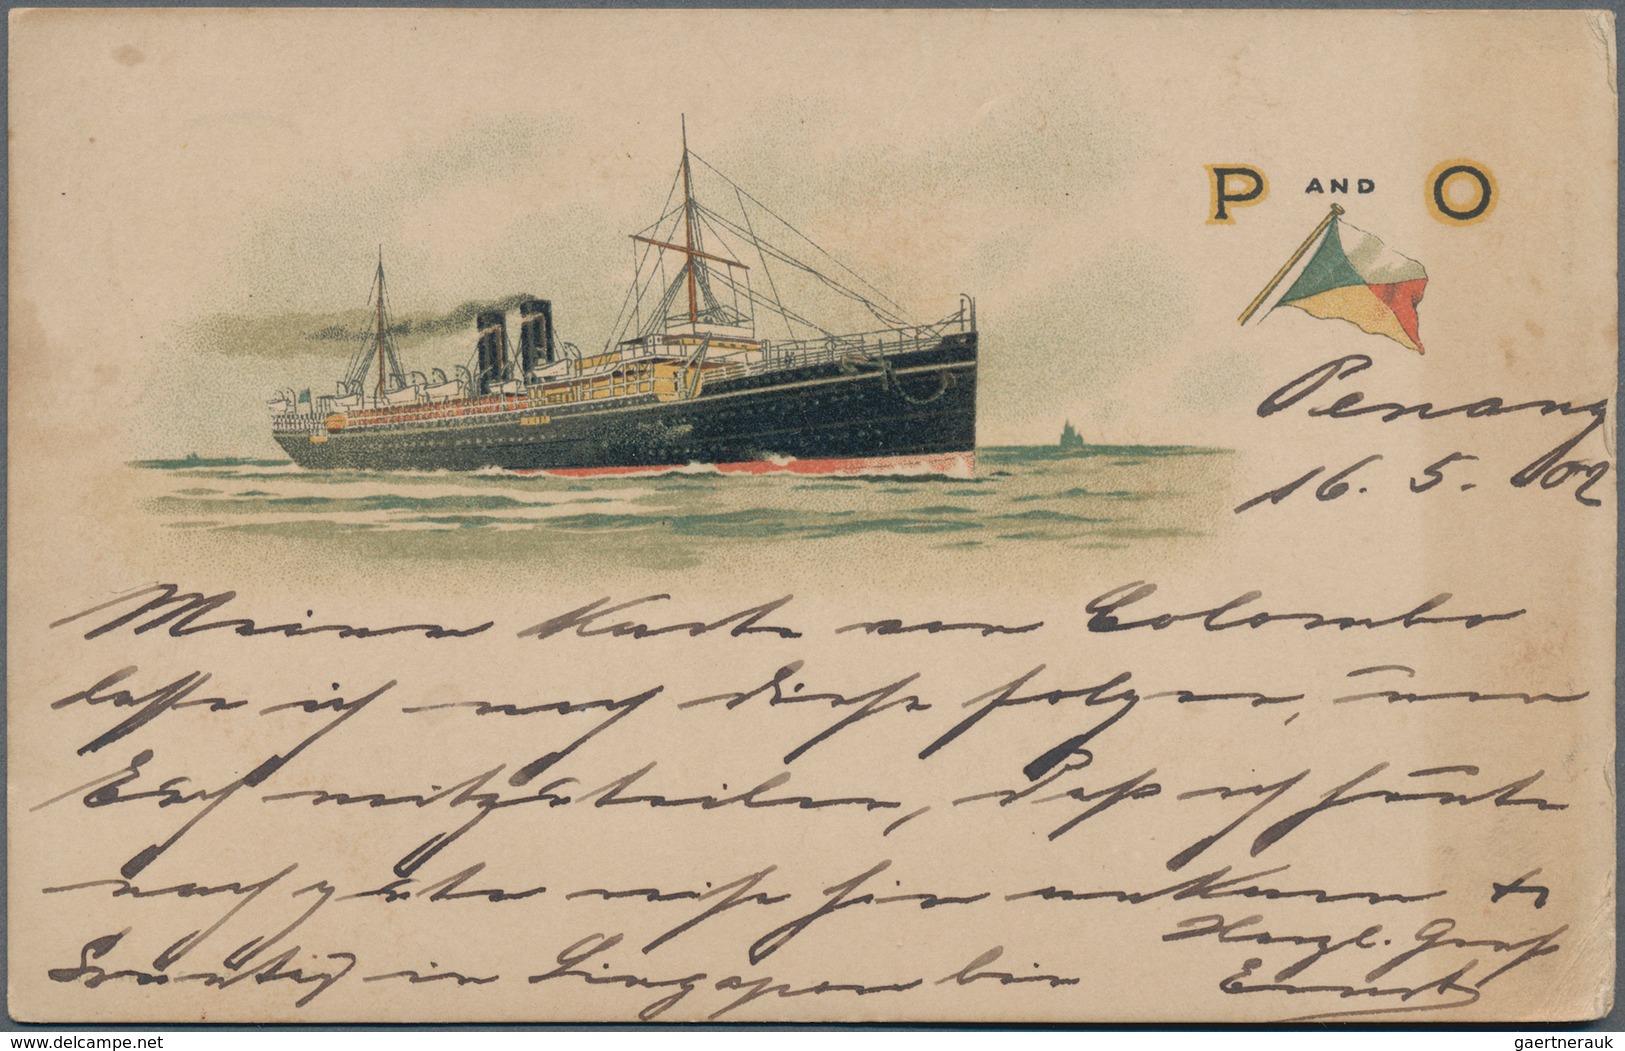 P AND O
Penang
16. 5. 02
Meine Karte von Colombo
lasse ich noch diese folgen, um
Euch mitzuteilen, daß ich heute
nach guter Reise hier ankam &
Sonntag in Singapore bin
Herzl. Gruß
Ernst
delcampe.net
gaertnerauk